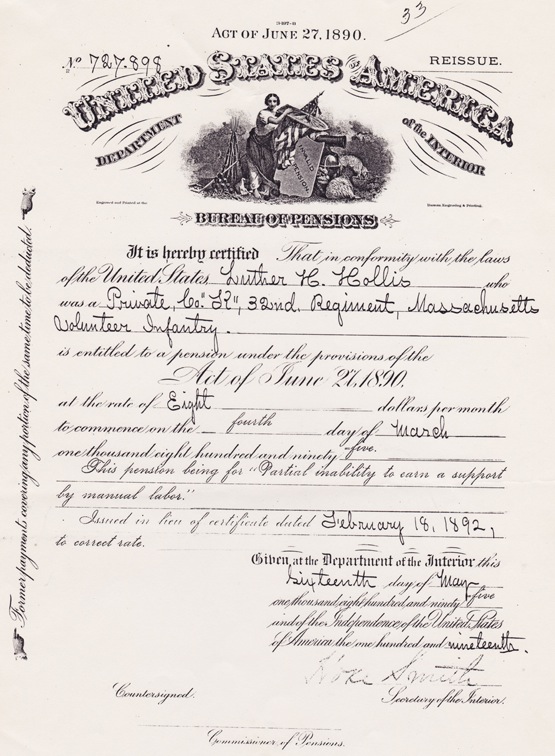 3-307-b
33
ACT OF JUNE 27, 1890.
No 727.898
REISSUE.
UNITED STATES OF AMERICA
DEPARTMENT
of the INTERIOR
BUREAU OF PENSIONS
It is hereby certified That in conformity with the laws
of the United States Luther H. Hollis who
was a Private, Co. "K", 32nd Regiment, Massachusetts
Volunteer Infantry.
is entitled to a pension under the provisions of the
Act of June 27, 1890.
at the rate of Eight dollars per month
to commence on the fourth day of March
one thousand eight hundred and ninety five.
This pension being for "Partial inability to earn a support
by manual labor."
Issued in lieu of certificate dated February 18, 1892,
to correct rate.
Given at the Department of the Interior this
Sixteenth day of May
one thousand eight hundred and ninety five
and of the Independence of the United States
of America the one hundred and nineteenth.
Hoke Smith
Countersigned.
Secretary of the Interior.
Commissioner of Pensions.
Former payments covering any portion of the same time to be deducted.